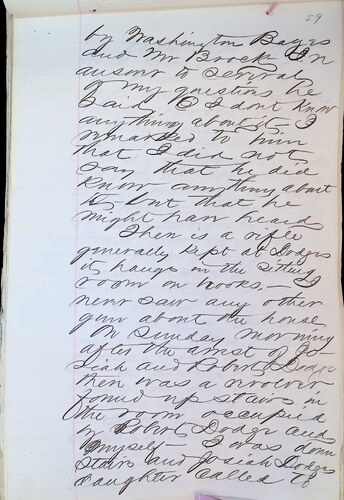 59
by Washington Bayes
and Mr Brock In
ausonr to several
of my questions he
said, O I dont know
anything about it - I
remarked to him
that I did not
say that he did
know anything about
it, but that he
might have heard
There is a rifle
generally kept at Dodges
it hangs in the sitting
room on hooks. - I
never saw any other
gun about the house
On Sunday morning
after the arrest of Jo-
siah and Robert Dodge
there was a revolver
found up stairs in
the room occupied
by Robert Dodge and
myself - I was down
stairs and Josiah Dodges
daughter called to